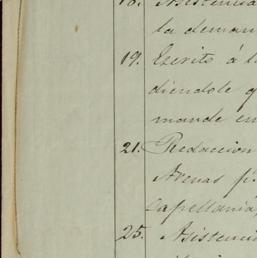 18. Asistencia
la deman
19. Escrito á l
diéndole q
mande en
21. Redaccion
Arenas p
capellania
25. Asistenci